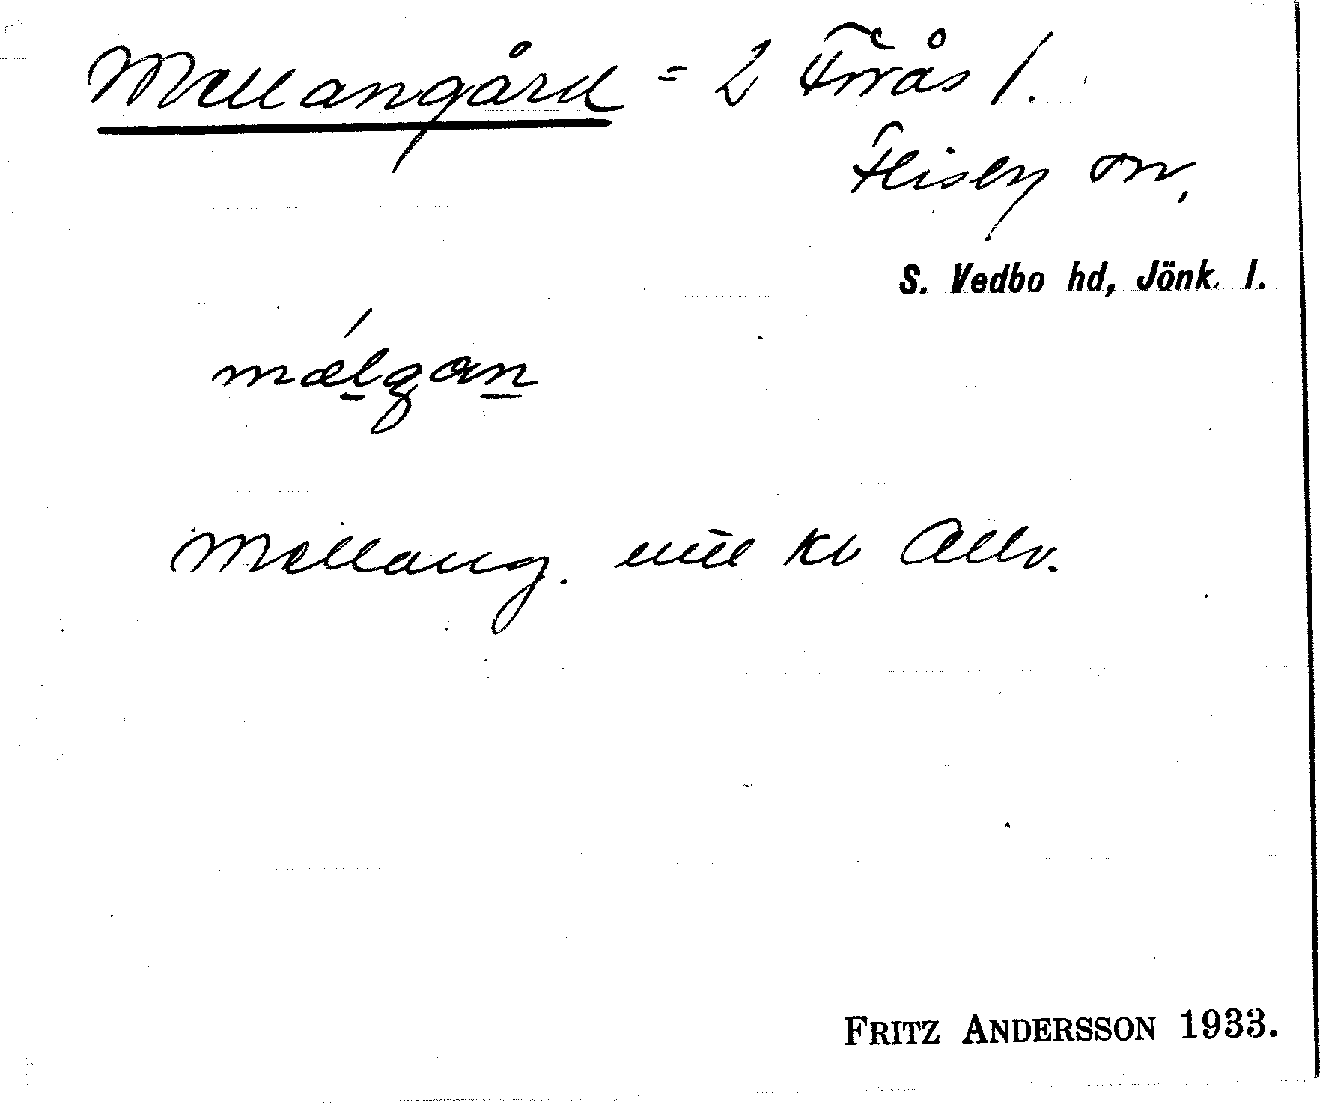 Mellangård = 2 Forås 1.
Flisby sn,
S. Vedbo hd, Jönk. l.
mælgan
Mellang.
FRITZ ANDERSSON 1933.